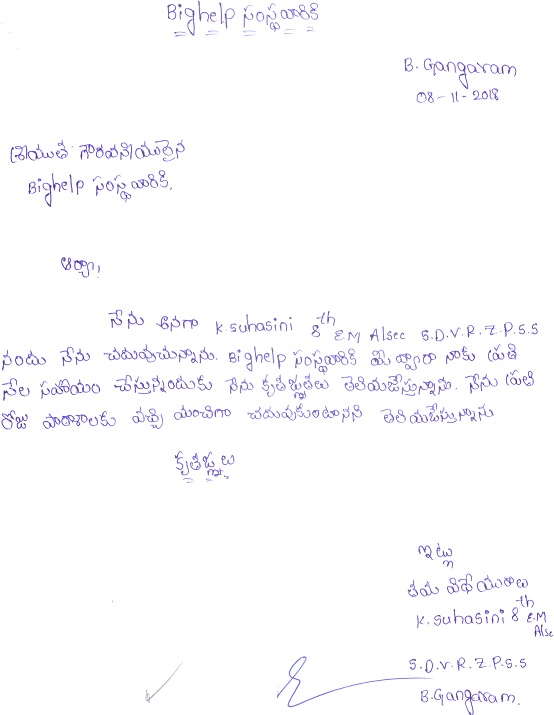 Bighelp సంస్థవారికి
B. Gangaram
08-11-2018
శ్రీయుత గౌరవనీయులైన
Bighelp సంస్థవారికి.
ఆర్యా!
నేను అనగా K.suhasini 8th E.M Alsec S.D.V.R.Z.P.S.S
నందు నేను చదువుచున్నాను. Bighelp సంస్థవారికి మీ ద్వారా నాకు ప్రతి
నేల సహాయం చేస్తున్నందుకు నేను కృతజ్ఞతలు తెలియజేస్తున్నాను. నేను ప్రతి
రోజు పాఠాశాలకు వచ్చి మంచిగా చదువుకుంటానని తెలియజేస్తున్నాను
కృతజ్ఞలు
ఇట్లు
తమ విధేయురాలు
K.suhasini 8th E.M
Alse
S.D.V.R.Z.P.S.S
B.Gangaram.